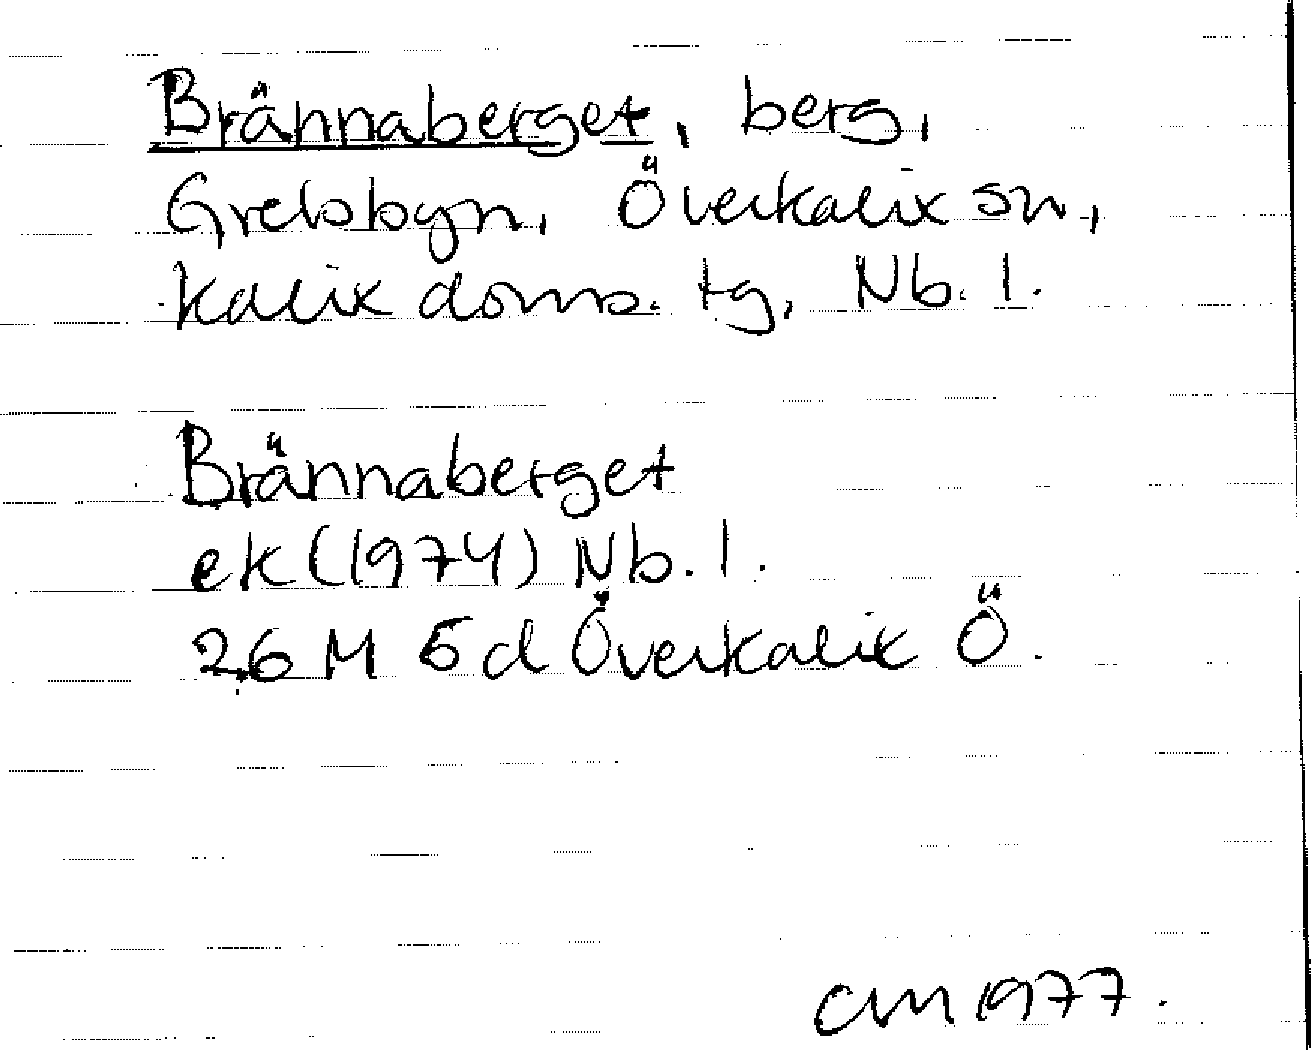 Brännaberget, berg,
Grelsbyn, Överkalix sn,
Kalix doms. tg, Nb. l.
Brännaberget
ek (1974) Nb. l.
26 M 5d Överkalix Ö.
CM 1977.